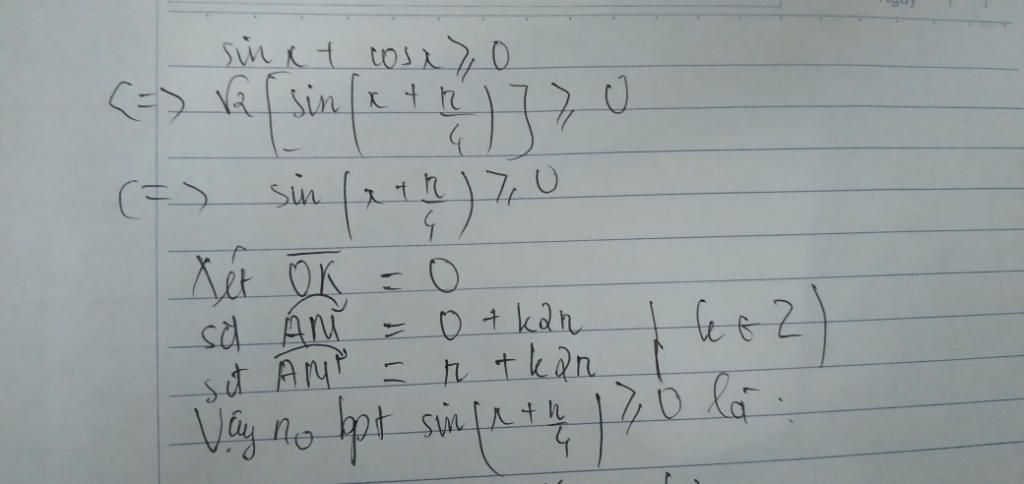 sin x + cos x ⩾ 0
<=> √2 [sin(x + π/4)] ⩾ 0
<=> sin(x + π/4) ⩾ 0
Xét OK = 0
sđ AM = 0 + k2π
sđ AM' = π + k2π (k ∈ Z)
Vậy no bpt sin(x + π/4) ⩾ 0 là: